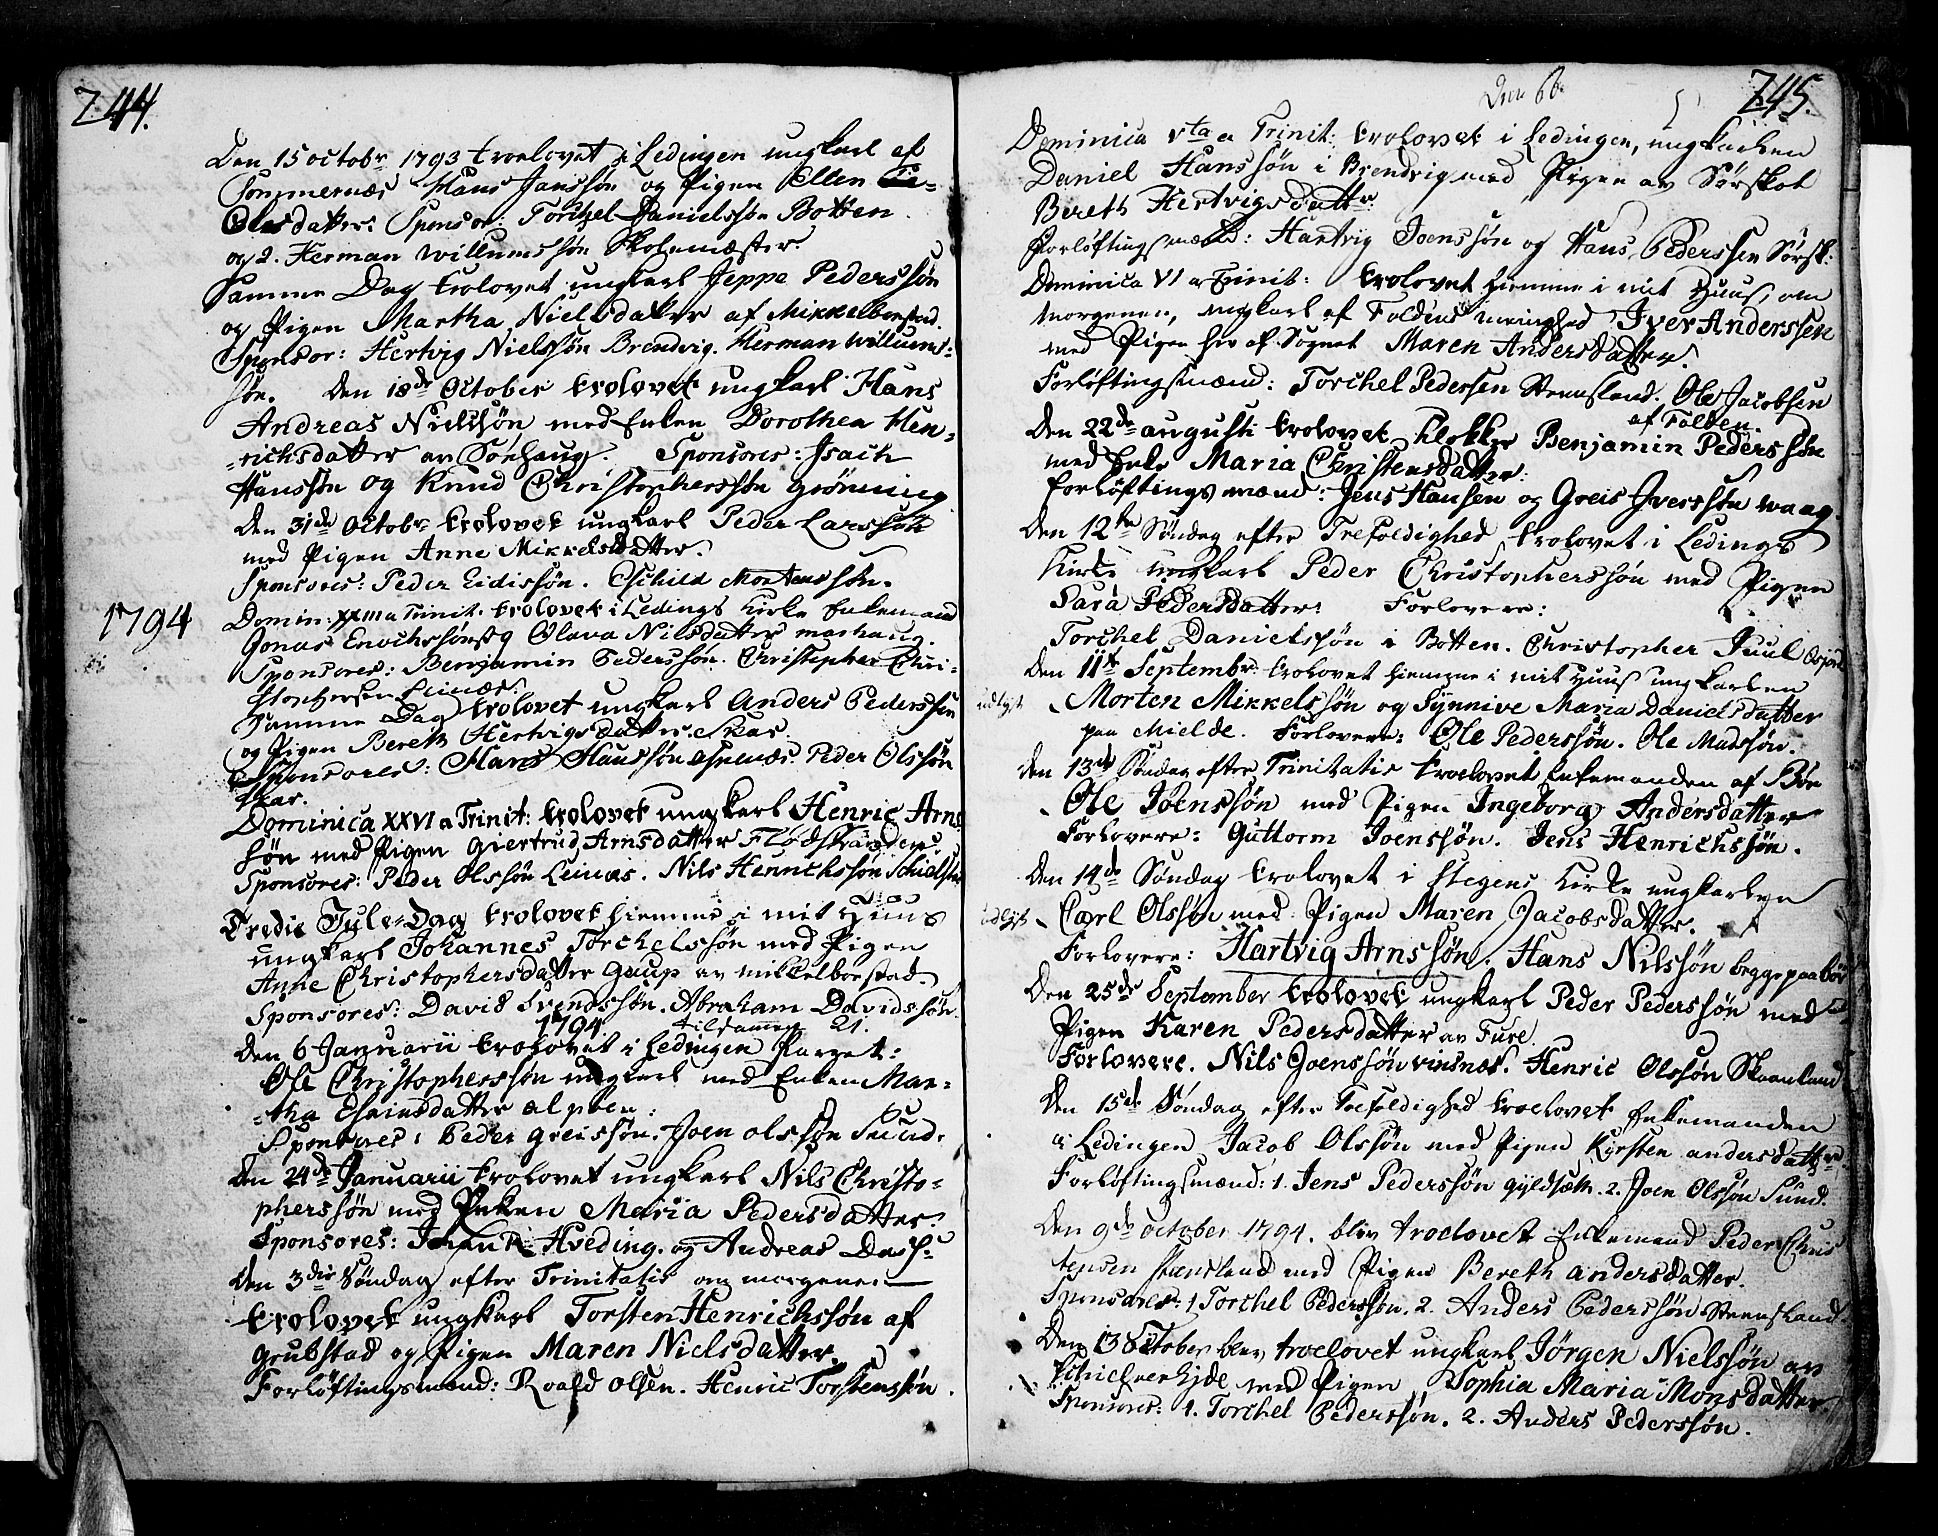 244.
Den 15 octobr 1793 troelovet i Lødingen ungkarl af
Sommernæs Hans Janssøn og Pigen Ellen
Olesdatter: Sponsor: Torchel Danielssøn Botten.
og 2. Herman Willumssøn Skolemæster.
Samme Dag trolovet ungkarl Jeppe Pederssøn
og Pigen Martha Nielsdatter af Mikkelborstad.
Sponsor: Hertvig Nielssøn Brendvig. Herman Willums-
søn. Den 18de October trolovet ungkarl Hans
Andreas Nielssøn med Enken Dorothea Hen-
richsdatter av Sørhaug. Sponsores: Isach
Hanssøn og Knud Christopherssøn Grønning
Den 31de Octobr trolovet ungkarl Peder Larssøn
med Pigen Anne Mikkelsdatter.
Sponsores: Peder Eidissøn. Eschild Mortenssøn.
1794
Domin: XXIII a Trinit. trolovet i Lødings Kirke Enkemand
Jonas Enochssøn og Olava Nilsdatter marhaug.
Sponsores: Benjamin Pederssøn. Christopher Chri-
stophersen Leinæs.
Samme Dag trolovet ungkarl Anders Pederssøn
og Pigen Bereth Hertvigsdatter Skar.
Sponsores: Hans Hanssøn Peder Olssøn
Skar.
Dominica XXVI a Trinit: trolovet ungkarl Henric Arns
søn med Pigen Giertrud Arnsdatter
Sponsores: Peder Olssøn Leinæs. Nils Henrichssøn
Tredie Jule-Dag trolovet hiemme i mit Huus
ungkarl Johannes Torchelssøn med Pigen
Anne Christophersdatter Gaup av Mikkelborstad.
Sponsores: David Svendssøn. Abraham Davidssøn.
1794 tilsammen 21.
Den 6 Januarii trolovet i Lødingen
Ole Christopherssøn ungkarl med Enken Mar-
tha Esaiasdatter
Sponsores: Peder Greissøn. Joen Olssøn Sund.
Den 24de Januarii trolovet ungkarl Nils Christo-
pherssøn med Enken Maria Pedersdatter.
Sponsores: Hveding. og Andreas Dass.
Den 3die Søndag efter Trinitatis om morgenen
trolovet ungkarl Torsten Henrichssøn af
Grubstad og Pigen Maren Nielsdatter.
Forløftingsmænd: Roald Olsen. Henric Torstenssøn.
245.
Dominica Vta a Trinit: trolovet i Lødingen, ungkarlen
Daniel Hanssøn i Brendvig med Pigen av Sørskot
Bereth Hertvigsdatter.
Forløftingsmænd: Hartvig Joenssøn og Hans Pederssen Sørsk:
Dominica VI a Trinit: trolovet hiemme i mit Huus, om
morgenen, ungkarl af Foldens menighed Iver Anderssen
med Pigen her af Sognet Maren Andersdatter.
Forløftingsmænd: Torchel Pedersen Steensland. Ole Jacobsen
af Folden.
Den 22de augusti trolovet Klokker Benjamin Pederssøn
med Enke Maria Christensdatter.
Forløftingsmænd: Jens Hansen og Greis Iverssøn Waag.
Den 12te Søndag efter Trefoldighed trolovet i Lødings
Kirke ungkarl Peder Christopherssøn med Pigen
Sara Pedersdatter: Forlovere:
Torchel Danielssøn i Botten. Christopher Juul
Den 11te Septembr trolovet hiemme i mit Huus ungkarlen
Morten Mikkelssøn og Synnive Maria Danielsdatter
paa Mielde. Forlovere: Ole Pederssøn. Ole Madssøn.
Den 13de Søndag efter Trinitatis troelovet Enkemanden af Bøe
Ole Joenssøn med Pigen Ingeborg Andersdatter
Forlovere: Guttorm Joenssøn. Jens Henrichssøn.
Den 14de Søndag trolovet i Stegens Kirke ungkarlen
Carl Olssøn med Pigen Maren Jacobsdatter.
Forlovere: Hartvig Arnssøn. Hans Nilssøn begge paa
Den 25de September trolovet ungkarl Peder Pederssøn med
Pigen Karen Pedersdatter av Fure.
Forlovere. Nils Joenssøn vinsnæs. Henric Olssøn Skaanland
Den 15de Søndag efter Trefoldighed troelovet Enkemanden
i Lødingen Jacob Olssøn med Pigen Kirsten andersdatter
Forløftingsmænd: 1. Jens Pederssøn Gyldsæth. 2. Joen Olssøn Sund.
Den 9de october 1794. blev troelovet Enkemand Peder Chris
tensen Stensland med Pigen Bereth andersdatter.
Sponsores: 1. Torchel Pederssøn. 2. Anders Pederssøn Steensland
Den 13 October blev troelovet ungkarl Jørgen Nielssøn av
med Pigen Sophia Maria Monsdatter
Sponsores: 1. Torchel Pederssøn. 2. Anders Pederssøn.